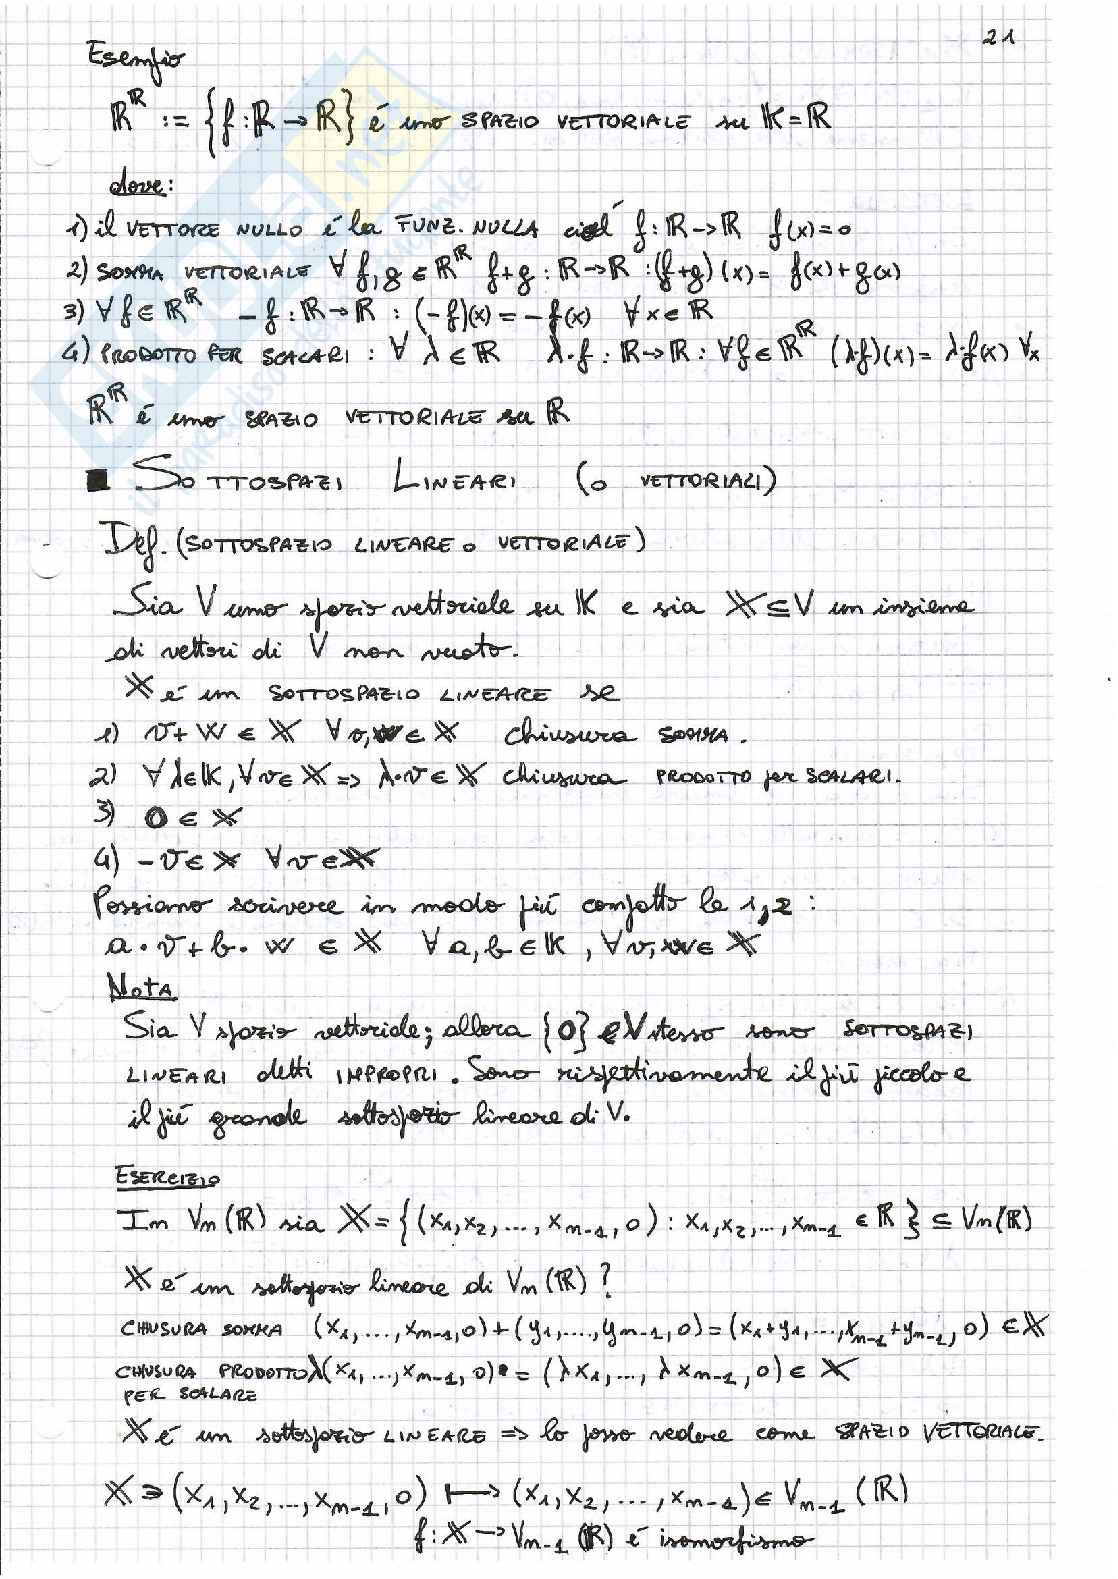 21
Esempio
ℝ^ℝ := {f: ℝ → ℝ} é uno SPAZIO VETTORIALE su 𝕂 = ℝ
dove:
1) il VETTORE NULLO é la FUNZ. NULLA cioé f: ℝ → ℝ f(x) = 0
2) SOMMA VETTORIALE ∀ f, g ∈ ℝ^ℝ f+g : ℝ → ℝ : (f+g)(x) = f(x) + g(x)
3) ∀ f ∈ ℝ^ℝ - f : ℝ → ℝ : (-f)(x) = - f(x) ∀ x ∈ ℝ
4) PRODOTTO PER SCALARI : ∀ λ ∈ ℝ λ·f : ℝ → ℝ : ∀ f ∈ ℝ^ℝ (λ·f)(x) = λ·f(x) ∀x
ℝ^ℝ é uno SPAZIO VETTORIALE su ℝ
■ SOTTOSPAZI LINEARI (o VETTORIALI)
Def. (SOTTOSPAZIO LINEARE o VETTORIALE)
Sia V uno spazio vettoriale su 𝕂 e sia 𝕏 ⊆ V un insieme
di vettori di V non vuoto.
𝕏 é un SOTTOSPAZIO LINEARE se
1) v + w ∈ 𝕏 ∀ v, w ∈ 𝕏 chiusura SOMMA.
2) ∀ λ ∈ 𝕂, ∀ v ∈ 𝕏 => λ·v ∈ 𝕏 chiusura PRODOTTO per SCALARI.
3) 0 ∈ 𝕏
4) -v ∈ 𝕏 ∀ v ∈ 𝕏
Possiamo scrivere in modo piú compatto le 1, 2 :
a · v + b · w ∈ 𝕏 ∀ a, b ∈ 𝕂, ∀ v, w ∈ 𝕏
NOTA
Sia V spazio vettoriale; allora {0} e V stesso sono SOTTOSPAZI
LINEARI detti IMPROPRI. Sono rispettivamente il piú piccolo e
il piú grande sottospazio lineare di V.
ESERCIZIO
In Vn(ℝ) sia 𝕏 = {(x1, x2, ..., xn-1, 0) : x1, x2, ..., xn-1 ∈ ℝ} ⊆ Vn(ℝ)
𝕏 é un sottospazio lineare di Vn(ℝ)?
CHIUSURA SOMMA (x1, ..., xn-1, 0) + (y1, ..., yn-1, 0) = (x1+y1, ..., xn-1+yn-1, 0) ∈ 𝕏
CHIUSURA PRODOTTO λ(x1, ..., xn-1, 0) = (λx1, ..., λxn-1, 0) ∈ 𝕏
PER SCALARE
𝕏 é un sottospazio LINEARE => lo posso vedere come SPAZIO VETTORIALE.
𝕏 ∋ (x1, x2, ..., xn-1, 0) ⟼ (x1, x2, ..., xn-1) ∈ Vn-1(ℝ)
f: 𝕏 → Vn-1(ℝ) é isomorfismo